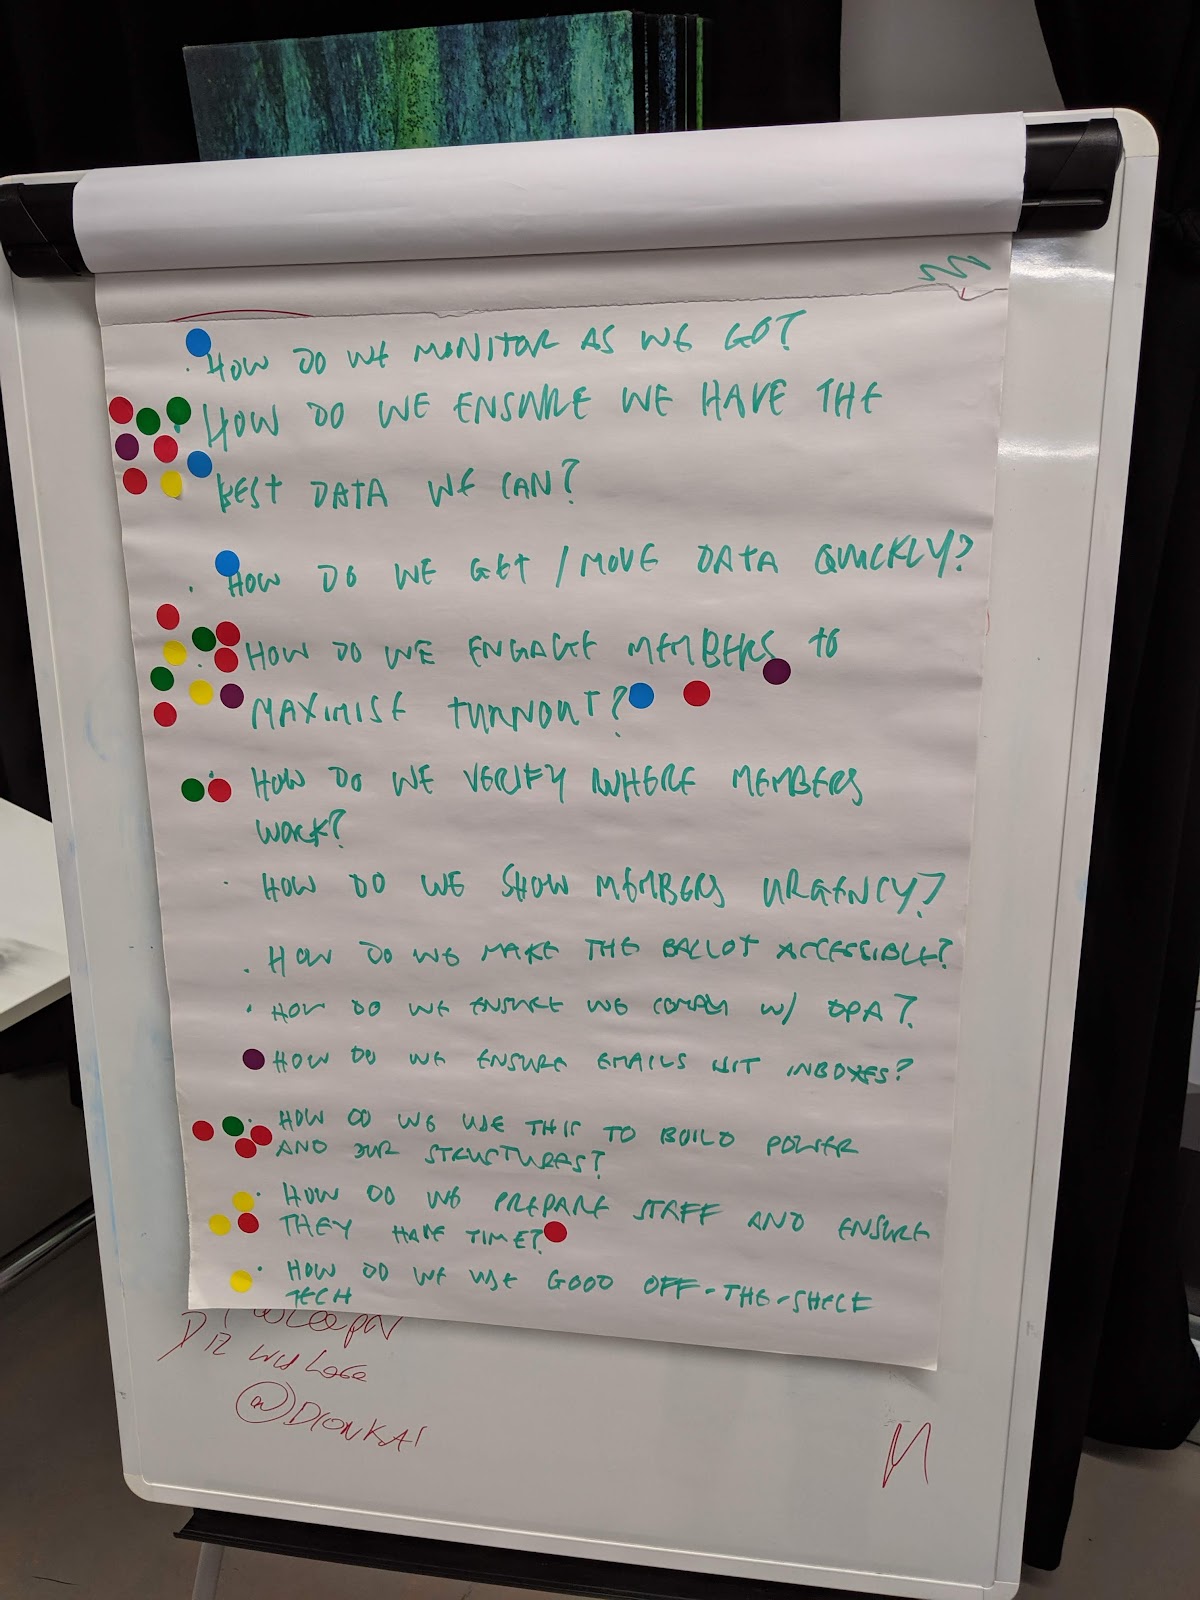 HOW DO WE MONITOR AS WE GO?
HOW DO WE ENSURE WE HAVE THE
BEST DATA WE CAN?
HOW DO WE GET / MOVE DATA QUICKLY?
HOW DO WE ENGAGE MEMBERS TO
MAXIMISE TURNOUT?
HOW DO WE VERIFY WHERE MEMBERS
WORK?
HOW DO WE SHOW MEMBERS URGENCY?
HOW DO WE MAKE THE BALLOT ACCESSIBLE?
HOW DO WE ENSURE WE COMPLY W/ DPA?
HOW DO WE ENSURE EMAILS HIT INBOXES?
HOW DO WE USE THIS TO BUILD POWER
AND OUR STRUCTURES?
HOW DO WE PREPARE STAFF AND ENSURE
THEY HAVE TIME?
HOW DO WE USE GOOD OFF-THE-SHELF
TECH
@DIONKAI